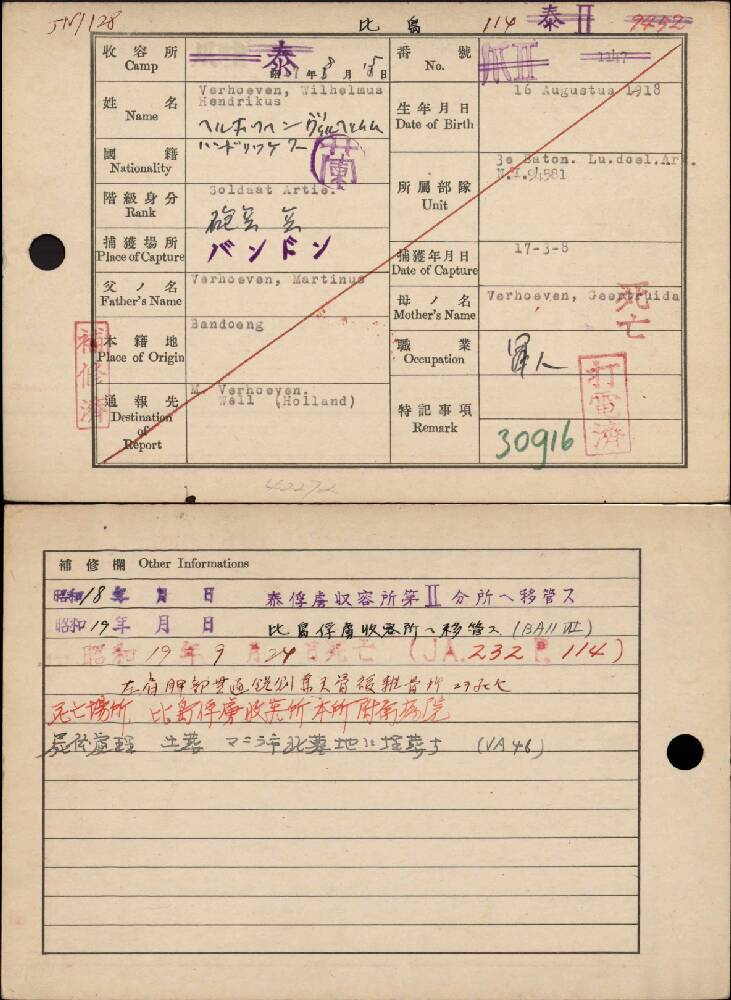 比島 114 泰II 9452
収容所 Camp 泰 年 8 月 15 日
番號 No. 1147
姓名 Name Verhoeven, Wilhelmus
Hendrikus
生年月日 Date of Birth 16 Augustus 1918
國籍 Nationality 蘭
所屬部隊 Unit 3e Baton. Lu.doel.Art.
N.I.94581
階級身分 Rank Soldaat Artie.
砲兵 兵
捕獲場所 Place of Capture バンドン
捕獲年月日 Date of Capture 17-3-8
父ノ名 Father's Name Verhoeven, Martinus
母ノ名 Mother's Name Verhoeven, Geertruida
死亡
本籍地 Place of Origin Bandoeng
職業 Occupation 軍人
補修濟
打電濟
通報先 Destination of Report M. Verhoeven.
Well (Holland)
特記事項 Remark 30916
補修欄 Other Informations
昭和18年 月 日 泰俘虜収容所第II分所ヘ移管ス
昭和19年 月 日 比島俘虜收容所ヘ移管ス
昭和19年9月24日死亡 (JA.232 P. 114)
死亡場所 比島俘虜收容所本所附属病院
土葬 マニラ市北墓地ニ埋葬ス (VA46)